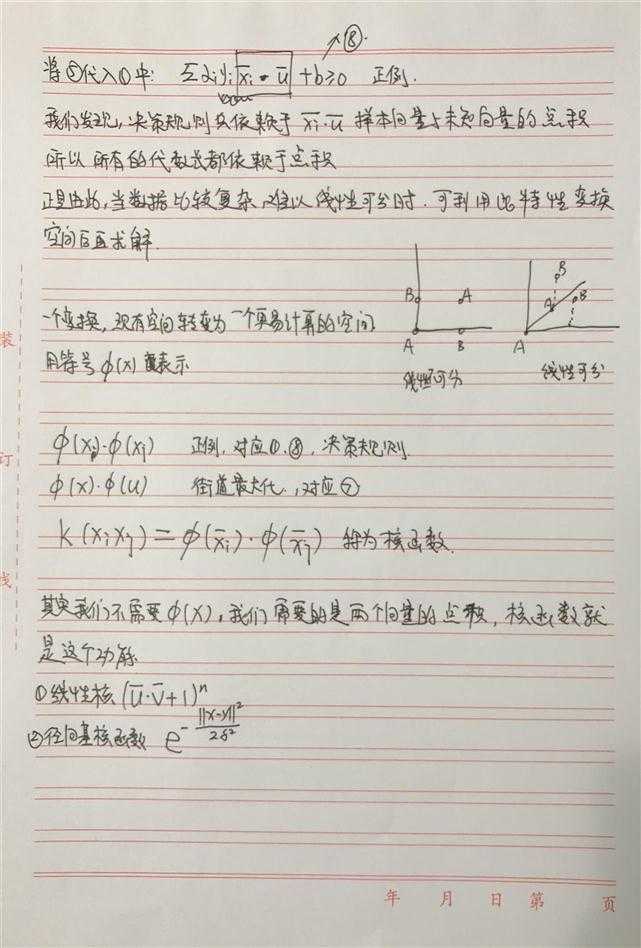 ⑧.
将⑤代入①中: Σαiyi x̄i·ū +b≥0 正例.
我们发现,决策规则只依赖于 x̄i·ū 样本向量与未知向量的点积
所以 所有的代数式都依赖于点积
正是由此,当数据比较复杂,难以线性可分时.可利用此特性变换
空间后再求解.
一个变换,现有空间转变为一个更易计算的空间.
用符号φ(x) 表示
B A
A B
线性不可分
B
A B
A
线性可分
φ(xi)·φ(xj) 正例,对应①.⑧,决策规则.
φ(x)·φ(u) 街道最大化.,对应⑦
K(xixj)=φ(x̄i)·φ(x̄j) 称为核函数.
其实我们不需要φ(x),我们需要的是两个向量的点积,核函数就
是这个功能
①线性核 (ū·v̄+1)ⁿ
②径向基核函数 e^(-||x-y||²/2δ²)
装
订
线
年 月 日 第 页